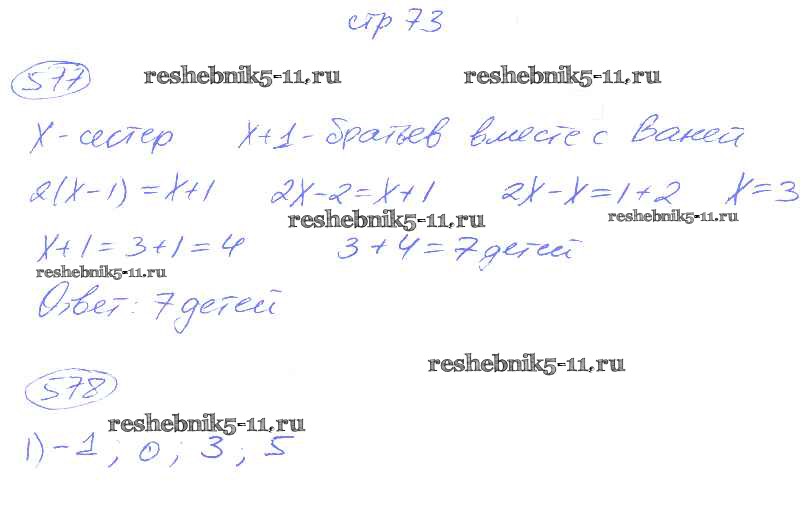 стр 73
577 reshebnik5-11.ru reshebnik5-11.ru
X - сестер X+1 - братьев вместе с Ваней
2(X-1) = X+1 2X-2=X+1 2X-X=1+2 X=3
reshebnik5-11.ru reshebnik5-11.ru
X+1=3+1=4 3+4=7 детей
reshebnik5-11.ru
Ответ: 7 детей
reshebnik5-11.ru
578
reshebnik5-11.ru
1) -1; 0; 3; 5